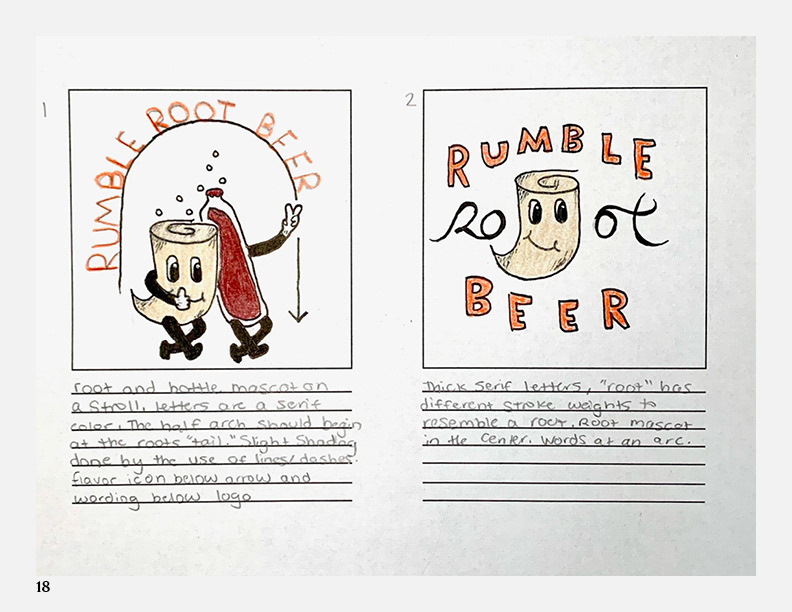 1
RUMBLE ROOT BEER
root and bottle mascot on
a stroll. letters are a serif
color. The half arch should begin
at the roots "tail." Slight shading
done by the use of lines/dashes.
flavor icon below arrow and
wording below logo
2
RUMBLE
Root
BEER
Thick serif letters, "root" has
different stroke weights to
resemble a root. Root mascot
in the center. Words at an arc.
18